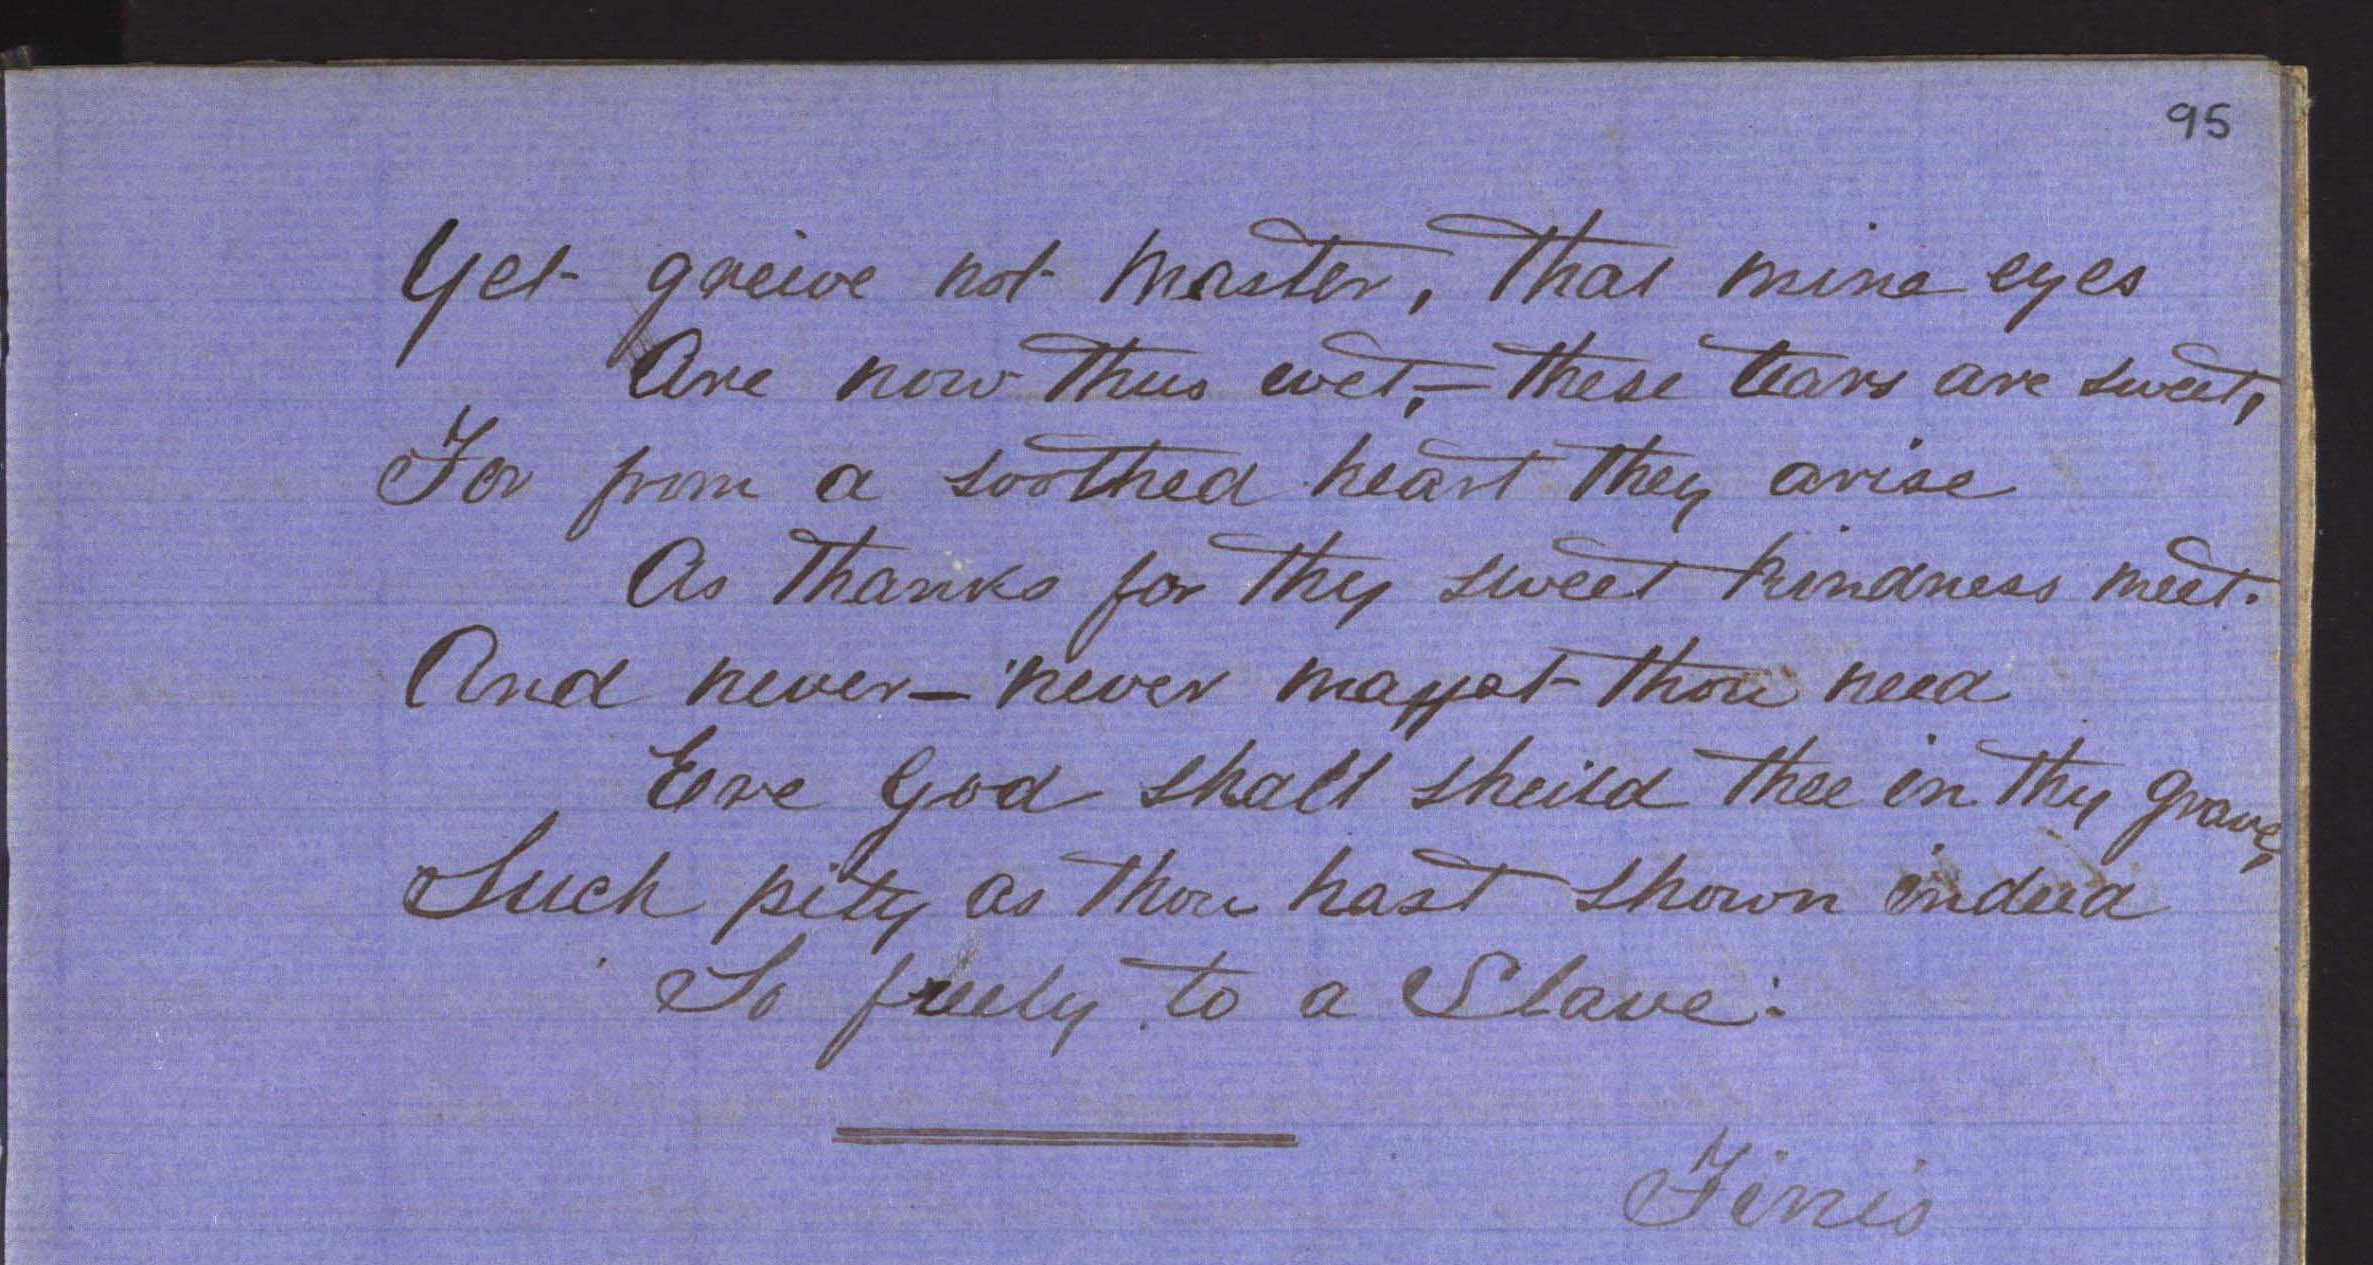 95
Yet greive not Master, that mine eyes
Are now thus wet,- these tears are sweet,
For from a soothed heart they arise
As thanks for thy sweet kindness meet.
And never- never mayst thou need
Ere God shall sheild thee in thy grave,
Such pity as thou hast shown indeed
So freely to a Slave:
Finis